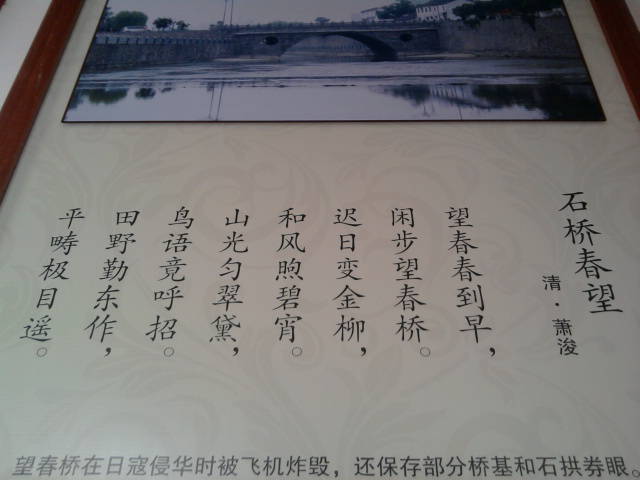 石桥春望
清·萧浚
望春春到早，
闲步望春桥。
迟日变金柳，
和风煦碧宵。
山光匀翠黛，
鸟语竞呼招。
田野勤东作，
平畴极目遥。
望春桥在日寇侵华时被飞机炸毁，还保存部分桥基和石拱券眼。